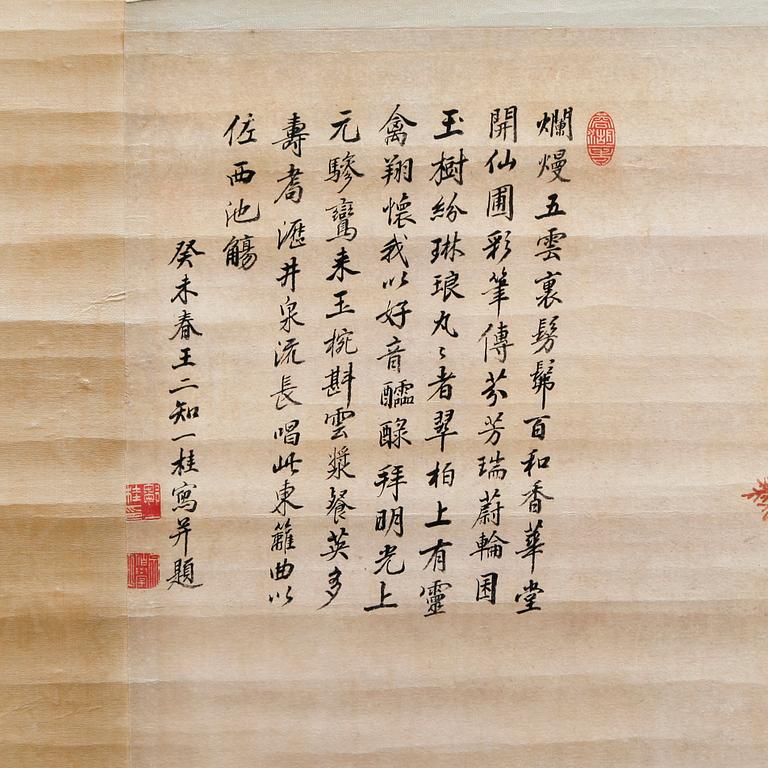 爛熳五雲裏髣髴百和香華堂
開仙圃彩筆傳芬芳瑞蔚輪囷
玉樹紛琳琅丸丶者翠柏上有靈
禽翔懷我以好音醽醁拜明光上
元驂鸞来玉椀斟雲漿餐英多
壽耇瀝井泉流長唱此東籬曲以
佐西池觴
癸未春王二知一桂寫并題